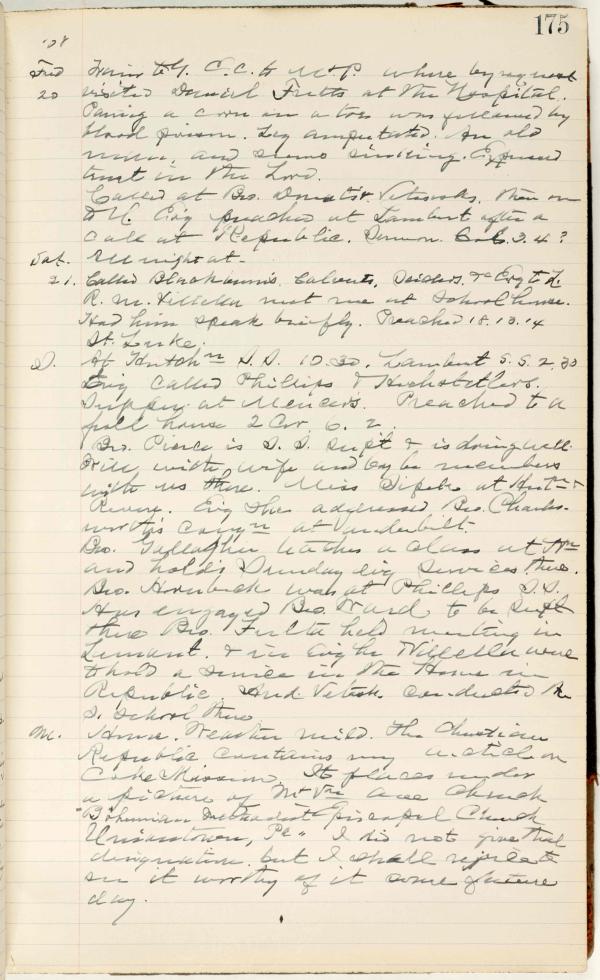 175
'08
Frid Train to Y. C.C. to Mt P. where by request
20 visited Daniel Fretts at the Hospital.
Paring a corn in a toe was followed by
blood poison. Leg amputated. An old
man, and seems sinking. Expressed
trust in the Lord.
Called at Bro. Vitovsks. then on
to U. Evg preached at Lambert after a
call at Republic. Sermon. Col. 3.4?
Sat. All night at-
21. Called Blackburn's. Calverts, &c Evg to
R. M. met me at School house.
Had him speak briefly. Preached 18.13.14
St. Luke.
S. At Hutchn S.S. 10.30. Lambert S.S. 2.30
Evg called Phillips &
Supper at Mencers. Preached to a
full house 2 Cor. 6. 2.
Bro. Pierce is S. S. Supt & is doing well.
Will, with wife and by be members
with us there. Miss Sifeh at Hutn &
Revere. Evg she addressed Bro. Charles-
worth's congn at
Bro. Gallagher teaches a class at Hn
and holds Sunday evg services there.
Bro. Hornbeck was at Phillips S.S.
Has engaged Bro. Ward to be Supt
there Bro. held meeting in
Lemont. & in Evg he were
to hold a service in the Home in
Republic. And Vitosk. conducted the
S. School there
M. Home. Weather mild. The Christian
Republic contains my article on
Coke Mission. It places under
a picture of Mt Vn Ave Church
"Bohemian Methodist Episcopal Church
Uniontown, Pa" I did not give that
designation but I shall rejoice to
see it worthy of it some future
day.